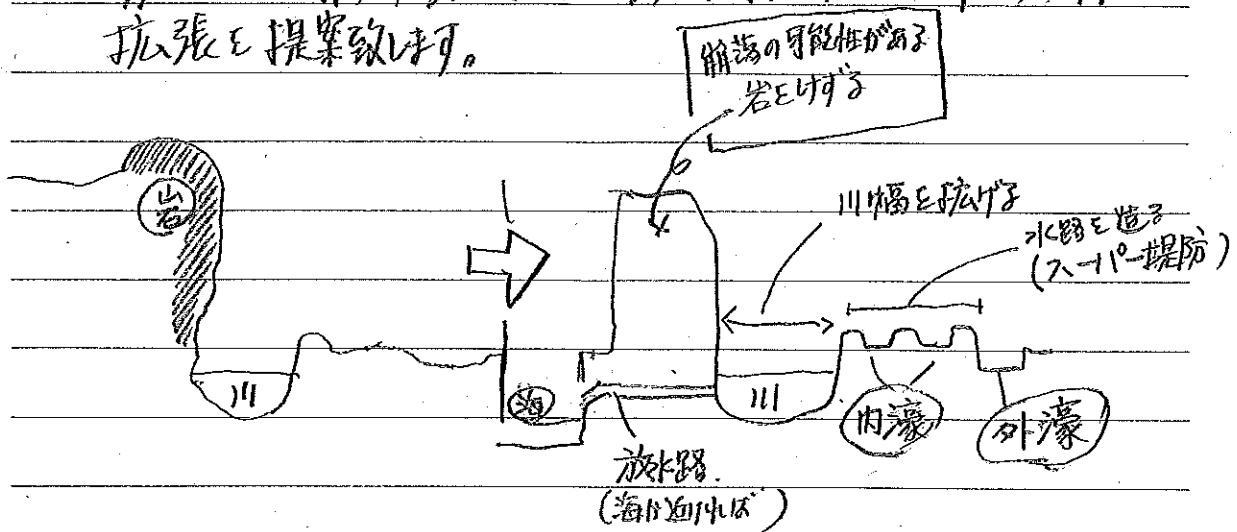 拡張を提案致します。
崩落の可能性がある
岩をけずる
川幅を拡げる
水路を造る
(スーパー堤防)
岩
川
海
川
内濠
外濠
放水路.
(海が近ければ)